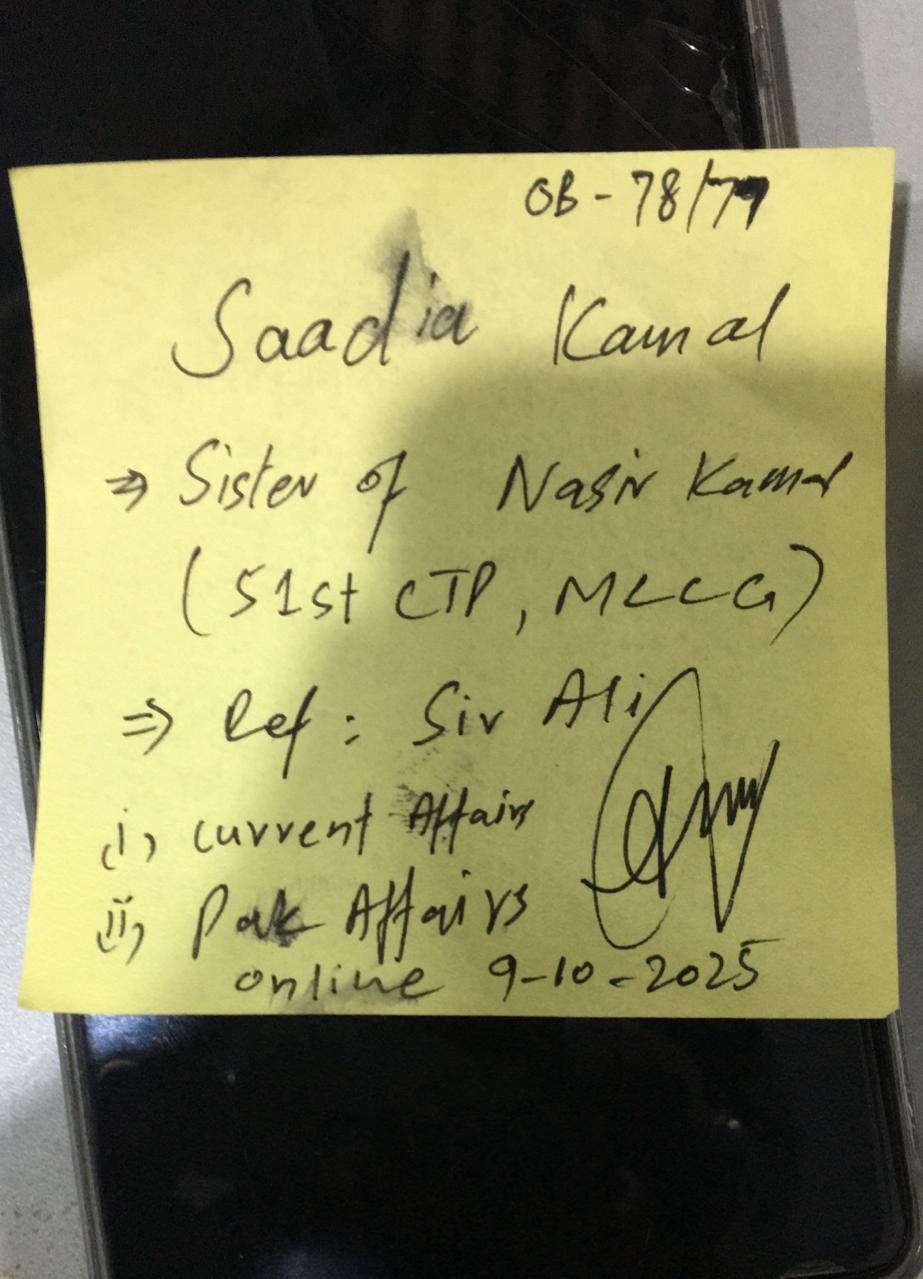 OB - 78/77
Saadia Kamal
⇒ Sister of Nasir Kamal
(51st CTP, MLCG)
⇒ Ref : Sir Ali
(i) Current Affairs
(ii) Pak Affairs
online 9-10-2025